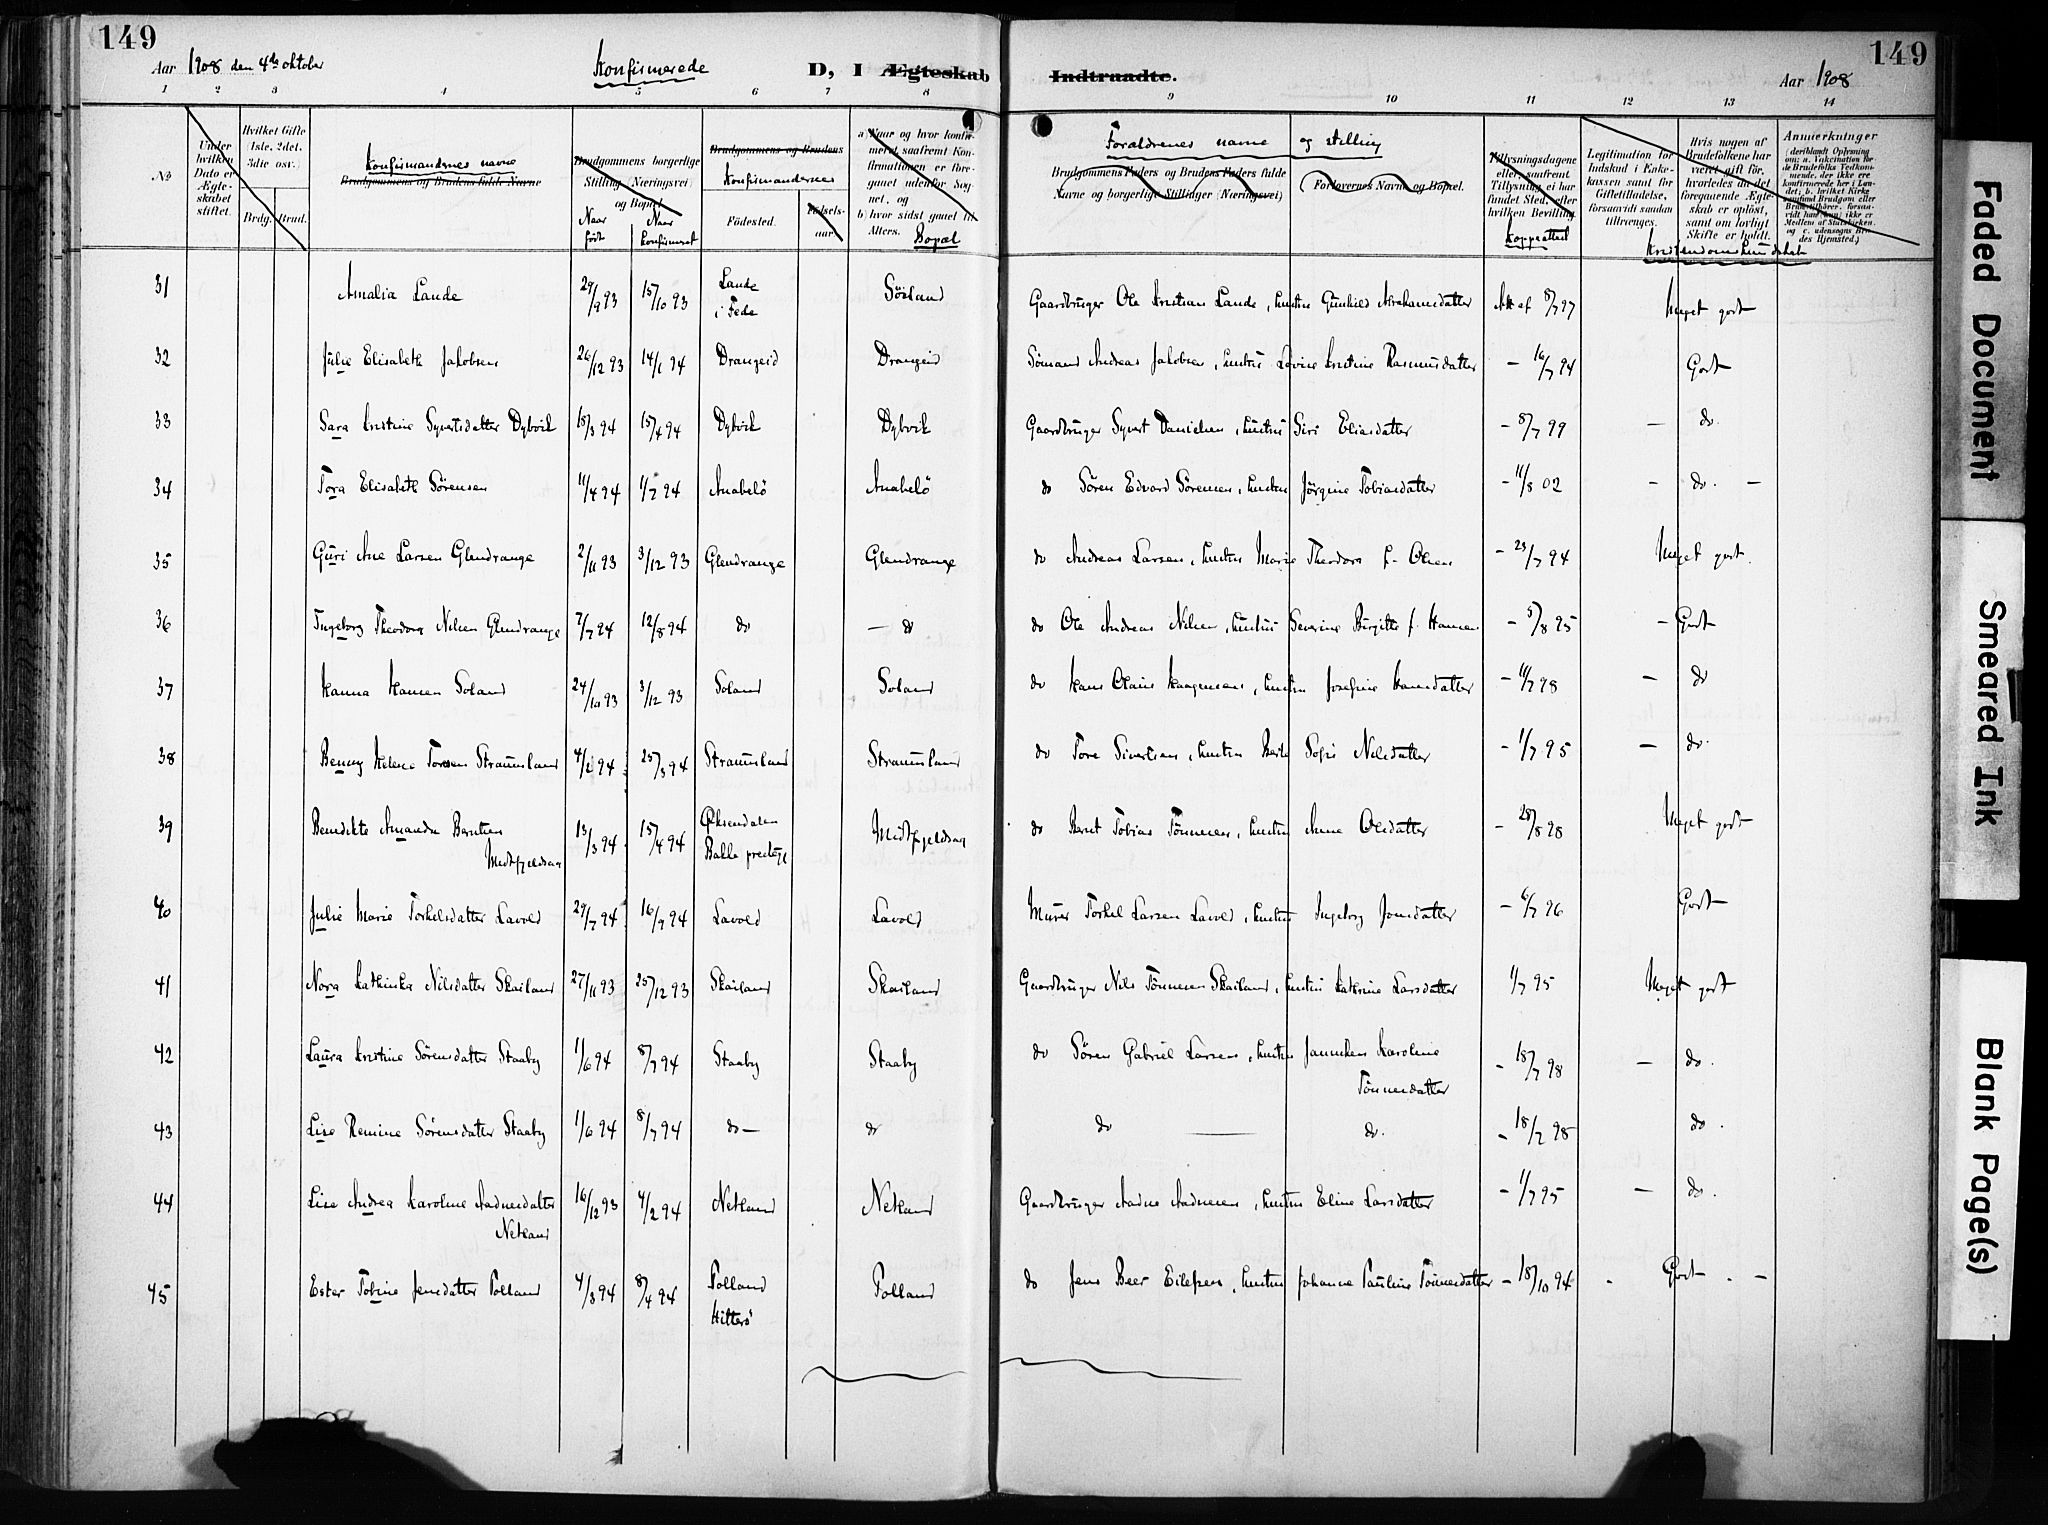 149
149
Aar 1908 den 4de oktober
Konfirmerede
D, I Ægteskab Indtraadte.
Aar 1908
1 2 3 4 5 6 7 8 9 10 11 12 13 14
No
Under hvilken Dato er Ægteskabet stiftet.
Hvilket Gifte (1ste, 2det, 3die osv.)
Brdg. Brud.
Konfirmandernes navne
Brudgommens og Brudens fulde Navne
Brudgommens borgerlige Stilling (Næringsvei) og Bopæl
Naar født
Naar konfirmeret
Brudgommens og Brudens
Konfirmandernes
Fødested.
Fødselsaar.
a) Naar og hvor konfirmeret, saafremt Konfirmationen er foregaaet udenfor Sognet, og
b) hvor sidst gaaet til Alters.
Bopæl
Forældrenes navne og stilling
Brudgommens Faders og Brudens Faders fulde Navne og borgerlige Stillinger (Næringsvei)
Forlovernes Navne og Bopæl.
Tillysningsdagene eller, saafremt Tillysning ei har fundet Sted, efter hvilken Bevilling.
Koppeattest
Legitimation for Indskud i Enkekassen samt for Giftetilladelse, forsaavidt saadan tiltrænges.
Hvis nogen af Brudefolkene har været gift før, hvorledes da det foregaaende Ægteskab er opløst, samt om lovligt Skifte er holdt.
Kristendomskundskab
Anmerkninger
(deriblandt Oplysning om: a. Vakcination for de Brudefolks Vedkommende, der ikke ere konfirmerede her i Landet; b. hvilket Kirkesamfund Brudgom eller Brud tilhører, forsaavidt han (hun) ikke er Medlem af Statskirken, og c. udensogns Brudes Hjemsted.)
31 Amalia Lande 29/9 93 15/10 93 Lande i Fede Sörland Gaardbruger Ole Kristian Lande, hustru Gunhild Abrahamsdatter Att af 8/7 97 Meget godt
32 Julie Elisabeth Jakobsen 26/12 93 14/1 94 Drangeid Drangeid Sømand Andreas Jakobsen, hustru Lovise Kristine Rasmusdatter – 16/7 94 Godt
33 Sara Kristine Syvertsdatter Dybvik 18/3 94 15/4 94 Dybvik Dybvik Gaardbruger Syvert Danielsen, hustru Siri Eliasdatter – 8/7 99 – do.
34 Tora Elisabeth Sörensen 11/4 94 1/7 94 Anabelö Anabelö do Sören Edvard Sörensen, hustru Jörgine Tobiasdatter – 11/8 02 – do. –
35 Guri Ane Larsen Glendrange 2/11 93 3/12 93 Glendrange Glendrange do Andreas Larsen, hustru Marie Theodora f. Olsen – 23/7 94 Meget godt.
36 Ingeborg Theodora Nilsen Glendrange 7/7 94 12/8 94 do – do do Ole Andreas Nilsen, hustru Severine Birgitte f. Hansen – 5/8 95 – Godt
37 Hanna Hansen Soland 24/10 93 3/12 93 Soland Soland do Hans Olaus Haagensen, hustru Josefine Hansdatter – 11/7 98 – do
38 Benny Helene Torsen Straumland 4/2 94 25/3 94 Straumland Straumland do Tore Sivertsen, hustru Berte Sofie Nilsdatter – 1/7 95 – do.
39 Benedikte Amanda Berntsen Midtfjeldsaa 13/3 94 15/4 94 Øksendalen Bakke prestegj Midtfjeldsaa do Bernt Tobias Tönnesen, hustru Anne Olsdatter – 28/8 98 Meget godt
40 Julie Marie Torkelsdatter Lavold 29/7 94 16/9 94 Lavold Lavold Murer Torkel Larsen Lavold, hustru Ingeborg Jonsdatter – 6/7 96 Godt
41 Nora Kathinka Nilsdatter Skailand 27/11 93 25/12 93 Skailand Skailand Gaardbruger Nils Tönnesen Skailand, hustru Kathrine Larsdatter 1/7 95 Meget godt
42 Laura Kristine Sörensdatter Staaby 1/6 94 8/7 94 Staaby Staaby do Sören Gabriel Larsen, hustru Janniken Karoline Tönnesdatter – 18/7 98 – do.
43 Lise Remine Sörensdatter Staaby 1/6 94 8/7 94 do – do do – do. – 18/7 98 do.
44 Lise Andrea Karoline Aadnesdatter Netland 16/12 93 4/2 94 Netland Netland Gaardbruger Aadne Aadnesen, hustru Eline Larsdatter – 1/7 95 – do.
45 Ester Tobine Jensdatter Tolland 4/3 94 8/4 94 Tolland Hitterö Tolland do Jens Beer Eilefsen, hustru Johanne Pauline Tönnesdatter – 18/10 94 – Godt. –
Faded Document
Smeared Ink
Blank Page(s)